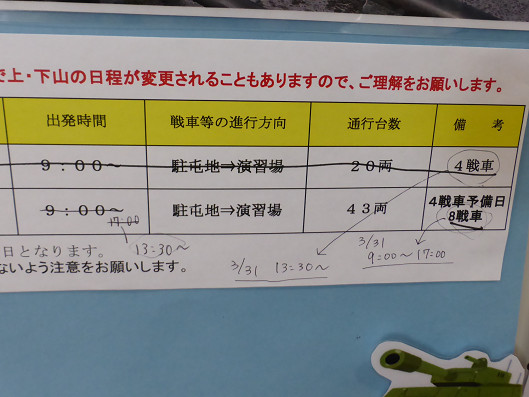 で上・下山の日程が変更されることもありますので、ご理解をお願いします。
出発時間 戦車等の進行方向 通行台数 備考
９：００～ 駐屯地⇒演習場 ２０両 ４戦車
９：００～ 駐屯地⇒演習場 ４３両 ４戦車予備日
8戦車
17:00
日となります。 13:30～
ないよう注意をお願いします。
3/31 13:30～
3/31
9:00～17:00